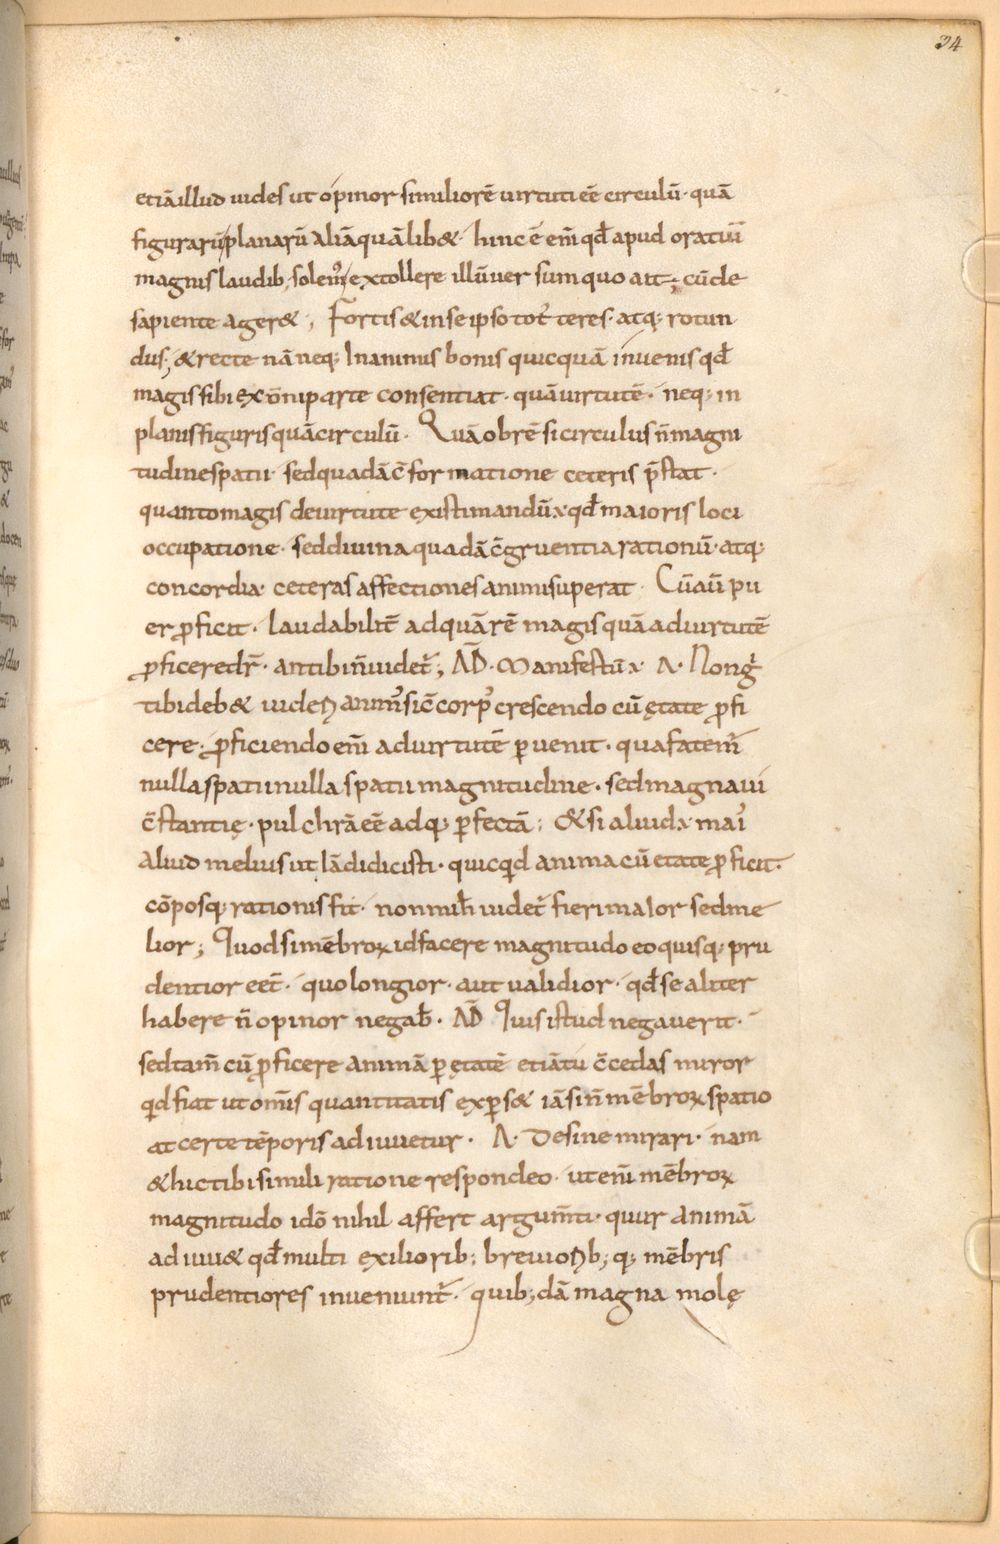 34
etiā illud uides ut opinor similiorē uirtuti eē circulū · quā
figurarū planarū aliā quālib& · hinc ē em̄ qđ apud oratiū
magnis laudib; solem᷒ extollere illū uersum quo ait ; cū de
sapiente ager& ; Fortis & in se ipso tot᷒ teres · atq; rotun
dus ; & recte nā neq; In animis bonis quicquā inuenis qđ
magis sibi ex om̄i parte consentiat · quā uirtutē · neq; in
planis figuris quā circulū · Quā obrē si circulus n̄ magni
tudine spatii · sed quadā c̄formatione ceteris p̄stat ·
quanto magis de uirtute existimandū ÷ qđ maioris loci
occupatione · sed diuina quadā c̄gruentia rationū · atq;
concordia · ceteras affectiones animi superat · Cū aū pu
er ꝓficit · laudabilit̄ ad quā rē magis quā ad uirtutē
ꝓficere dr̄ · an tibi n̄ uidet᷒ ; AD̄ · Manifestū ÷ · A · Non g̊
tibi deb& uideꝶ anim᷒ sic̄ corp᷒ crescendo cū ętate ꝓfi
cere · ꝓficiendo em̄ ad uirtutē ꝑuenit · qua fatem᷒
nulla spatii nulla spatii magnitudine · sed magna ui
c̄stantię · pulchrā eē adq; ꝑfectā ; & si aliud ÷ mai᷒
aliud melius ut lā didicisti · quicqid anima cū etate ꝓficit ·
cōposq; rationis fit · non mih̄ uidet᷒ fieri maior sed me
lior ; Quod si mēbroꝝ id facere magnitudo eo quisq; pru
dentior eet̄ · quo longior · aut ualidior · qđ se aliter
habere n̄ opinor negab̄ · AD̄ Quis istud negauerit ·
sed tam̄ cū ꝓficere animā ꝑ ętatē etiā tu c̄cedas miror
qid fiat ut om̄is quantitatis expers & iā si n̄ mēbroꝝ spatio
at certe tēporis adiuuetur · A · Desine mirari · nam
& hic tibi simili ratione respondeo · ut em̄ mēbroꝝ
magnitudo idō nihil affert argum̄ti · quur animā
adiuu& qđ multi exiliorib; breuioꝶb; q; mēbris
prudentiores inueniunt᷒ · quib;dā magna molę